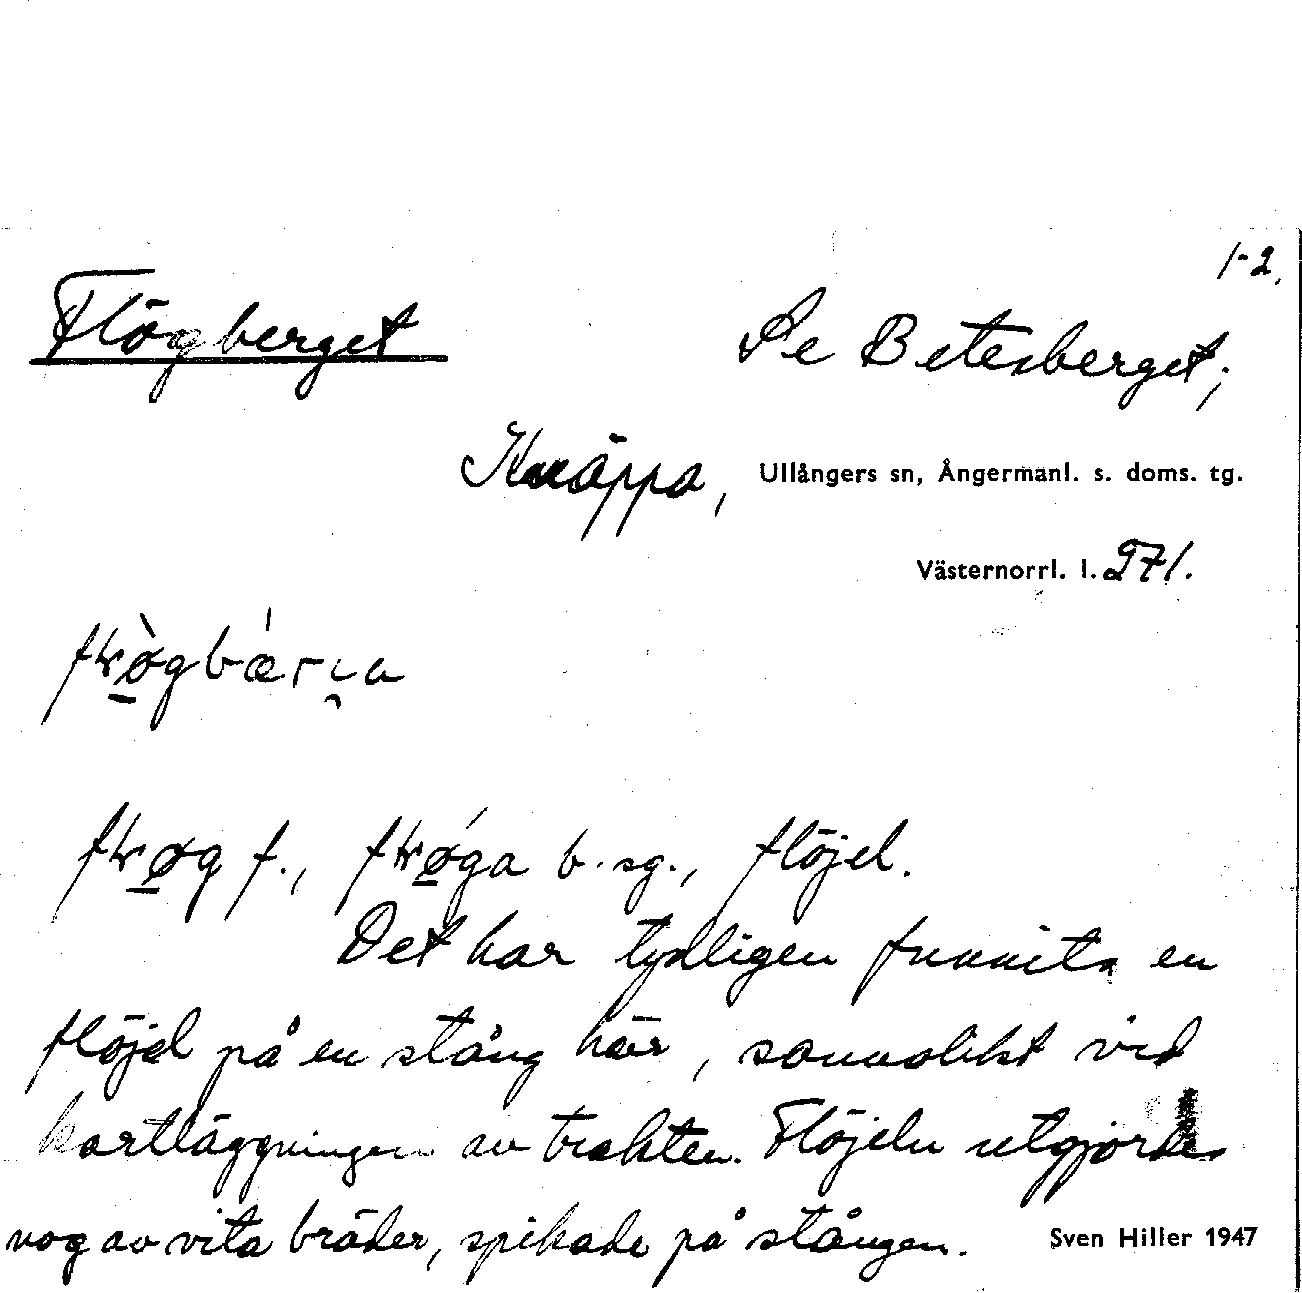 1-2.
Flögberget Se Betesberget;
Knäppa, Ullångers sn, Ångermanl. s. doms. tg.
Västernorrl. l. 971.
f., b. sg., flöjel.
Det har tydligen funnits en
flöjel på en stång här, sannolikt vid
kartläggningen av trakten. Flöjeln utgjordes
nog av vita bräder, spikade på stången. Sven Hiller 1947